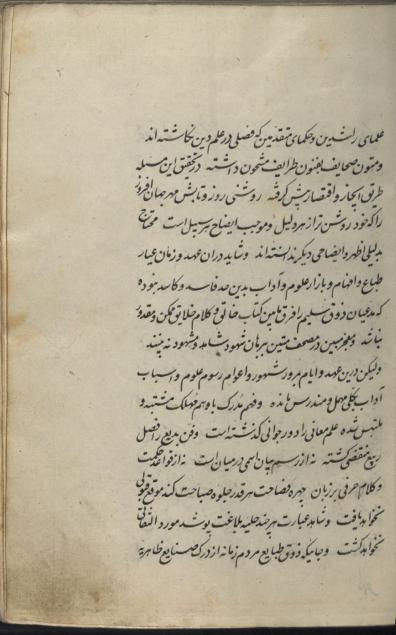 علمای راشدین و حکمای متقدمین که فصلی در علم دین نگاشته اند
و متون صحایف بفنون طرایف مشحون داشته در تحقیق این مسئله
طریق ایجاز و اقتصار پیش گرفته روشنی روز و تابش مهر جهان افروز
را که خود روشن تر از هر دلیل و موجب ایضاح هر سبیل است محتاج
بدلیلی اظهر و ایضاحی دیگر ندانسته اند و شاید در ان عهد و زمان عیار
طباع و افهام و بازار علوم و آداب بدین حد فاسد و کاسد نبوده
که مدعیان ذوق سلیم را فرق ما بین کتاب خالق و کلام خلایق ممکن و مقدور
نباشد و معجز مبین در مصحف متین ببرهان شهود شاهد و مشهود نه بینند
ولیکن درین عهد و ایام بمرور شهور و اعوام رسوم علوم و اسباب
آداب بکلی مهمل و مندرس مانده و فهم مدرک با وهم مهلک مشتبه و
ملتبس شده علم معانی را دور جوانی گذشته است و فن بدیع را فصل
ربیع منقضی گشته نه از رسم بیان اسمی در میان است نه از قواعد حکمت
و کلام حرفی بر زبان چهره فصاحت هر قدر جلوه صباحت کند موقع قبولی
نخواهد یافت و شاهد عبارت هر چند حلیه بلاغت پوشد مورد التفاتی
نخواهد گشت و جائیکه ذوق طبایع مردم زمانه از درک صنایع ظاهریه